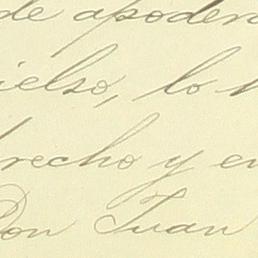 de apoder
ielso, lo
recho y en
Don Juan